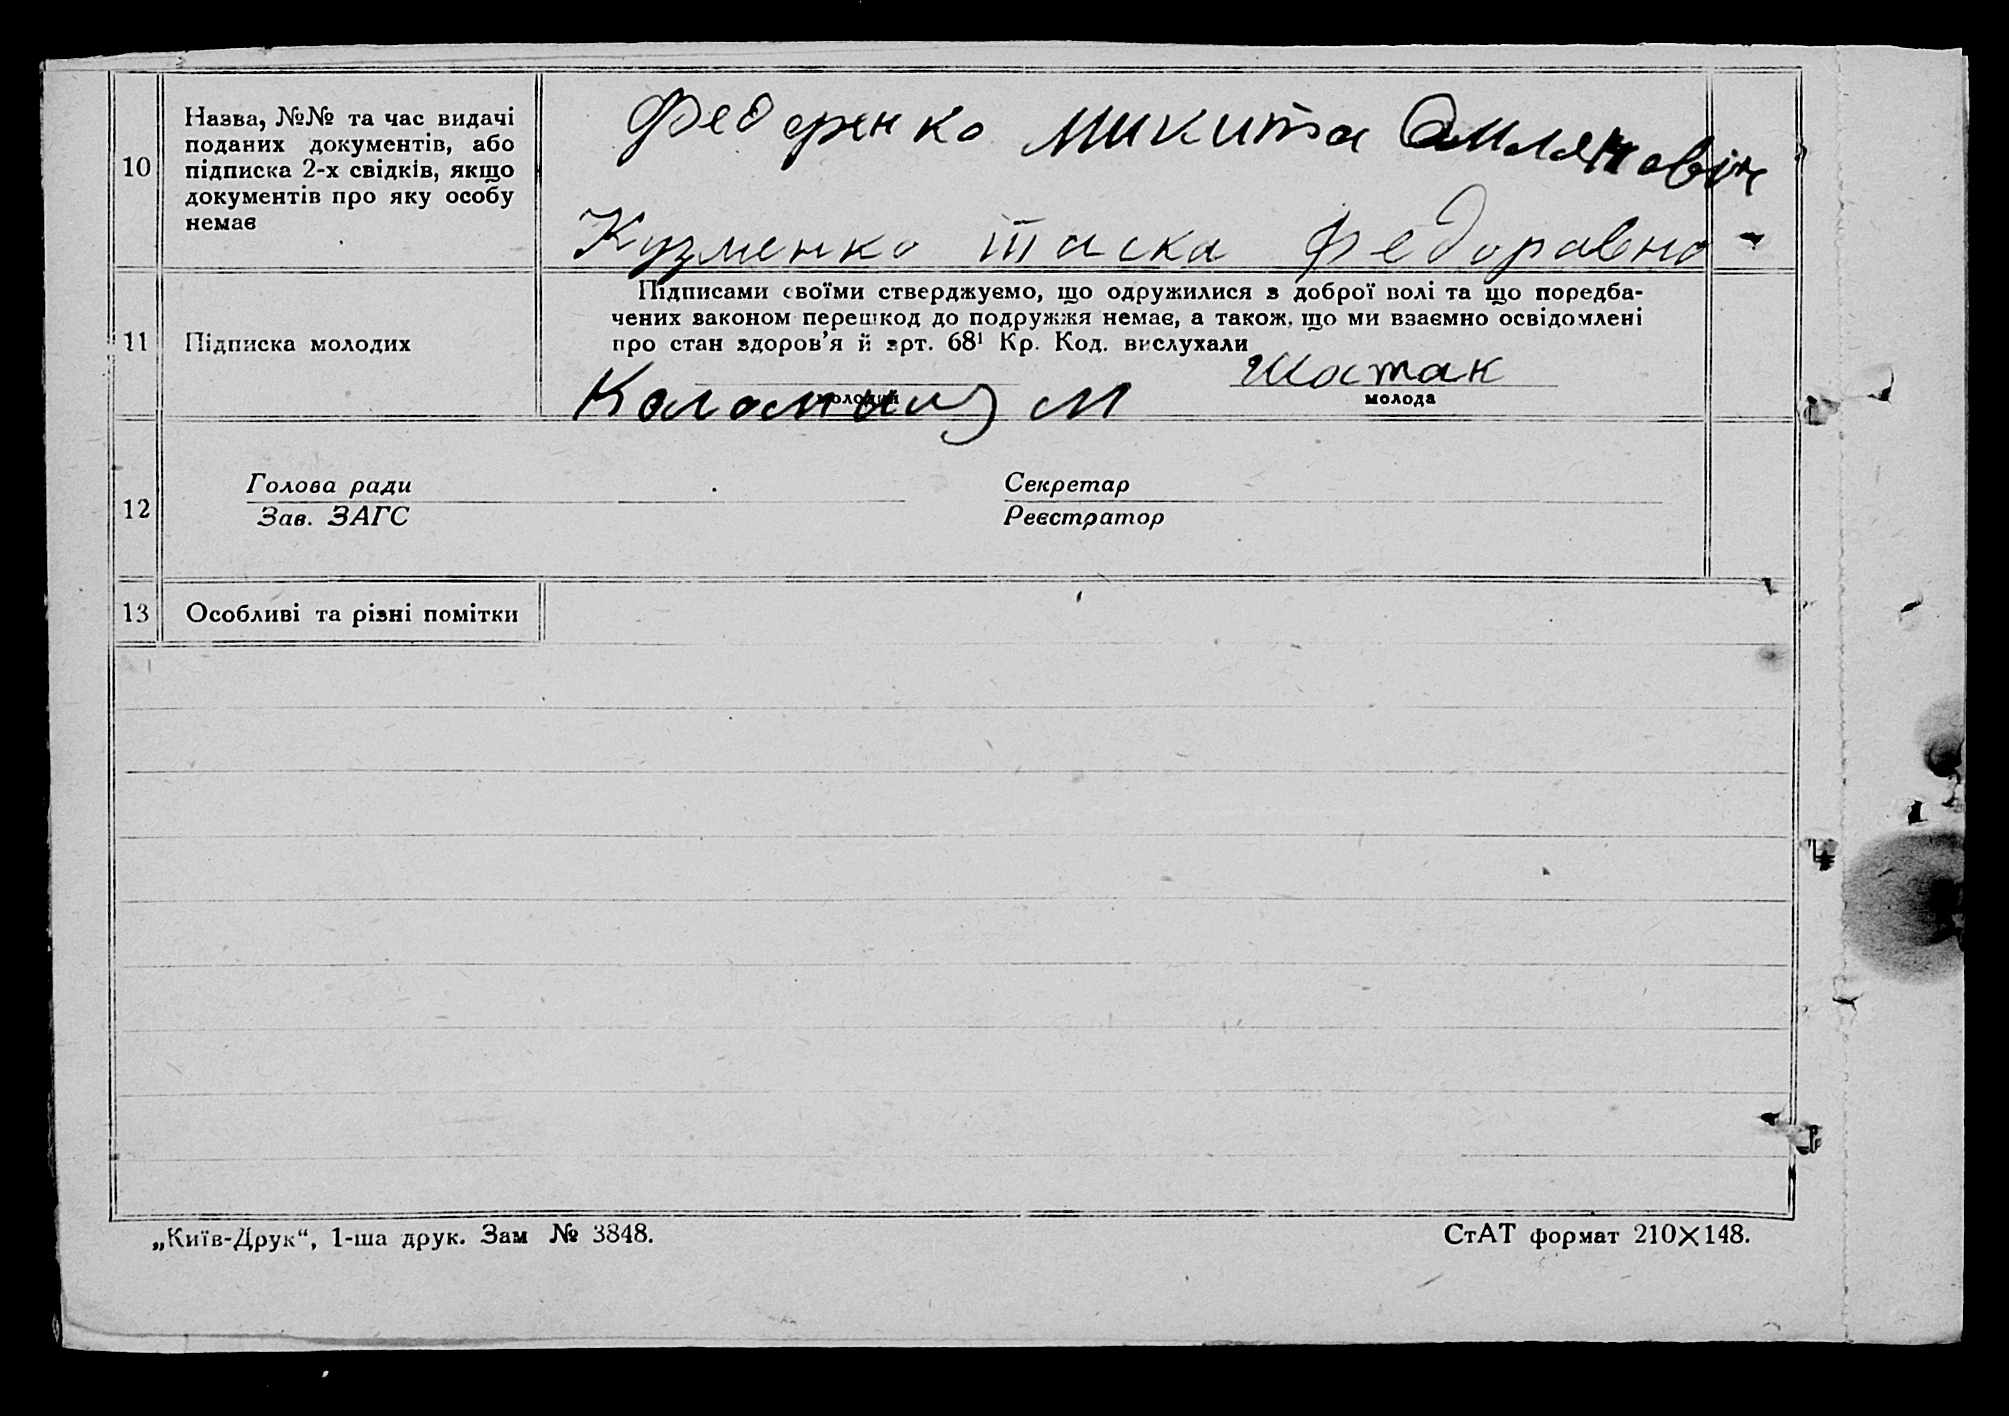 10
Назва, №№ та час видачі
поданих документів, або
підписка 2-х свідків, якщо
документів про яку особу
немає
Федоренко Микита Омлянович
Кузменко Таска Федоравна -
11
Підписка молодих
Підписами своїми стверджуємо, що одружилися з доброї волі та що поредба-
чених законом перешкод до подружжя немає, а також, що ми взаємно освідомлені
про стан здоров'я й арт. 68¹ Кр. Код. вислухали
Шостак
молодий
молода
М
12
Голова ради
Зав. ЗАГС
Секретар
Реєстратор
13
Особливі та різні помітки
„Київ-Друк“, 1-ша друк. Зам № 3848.
СтАТ формат 210×148.